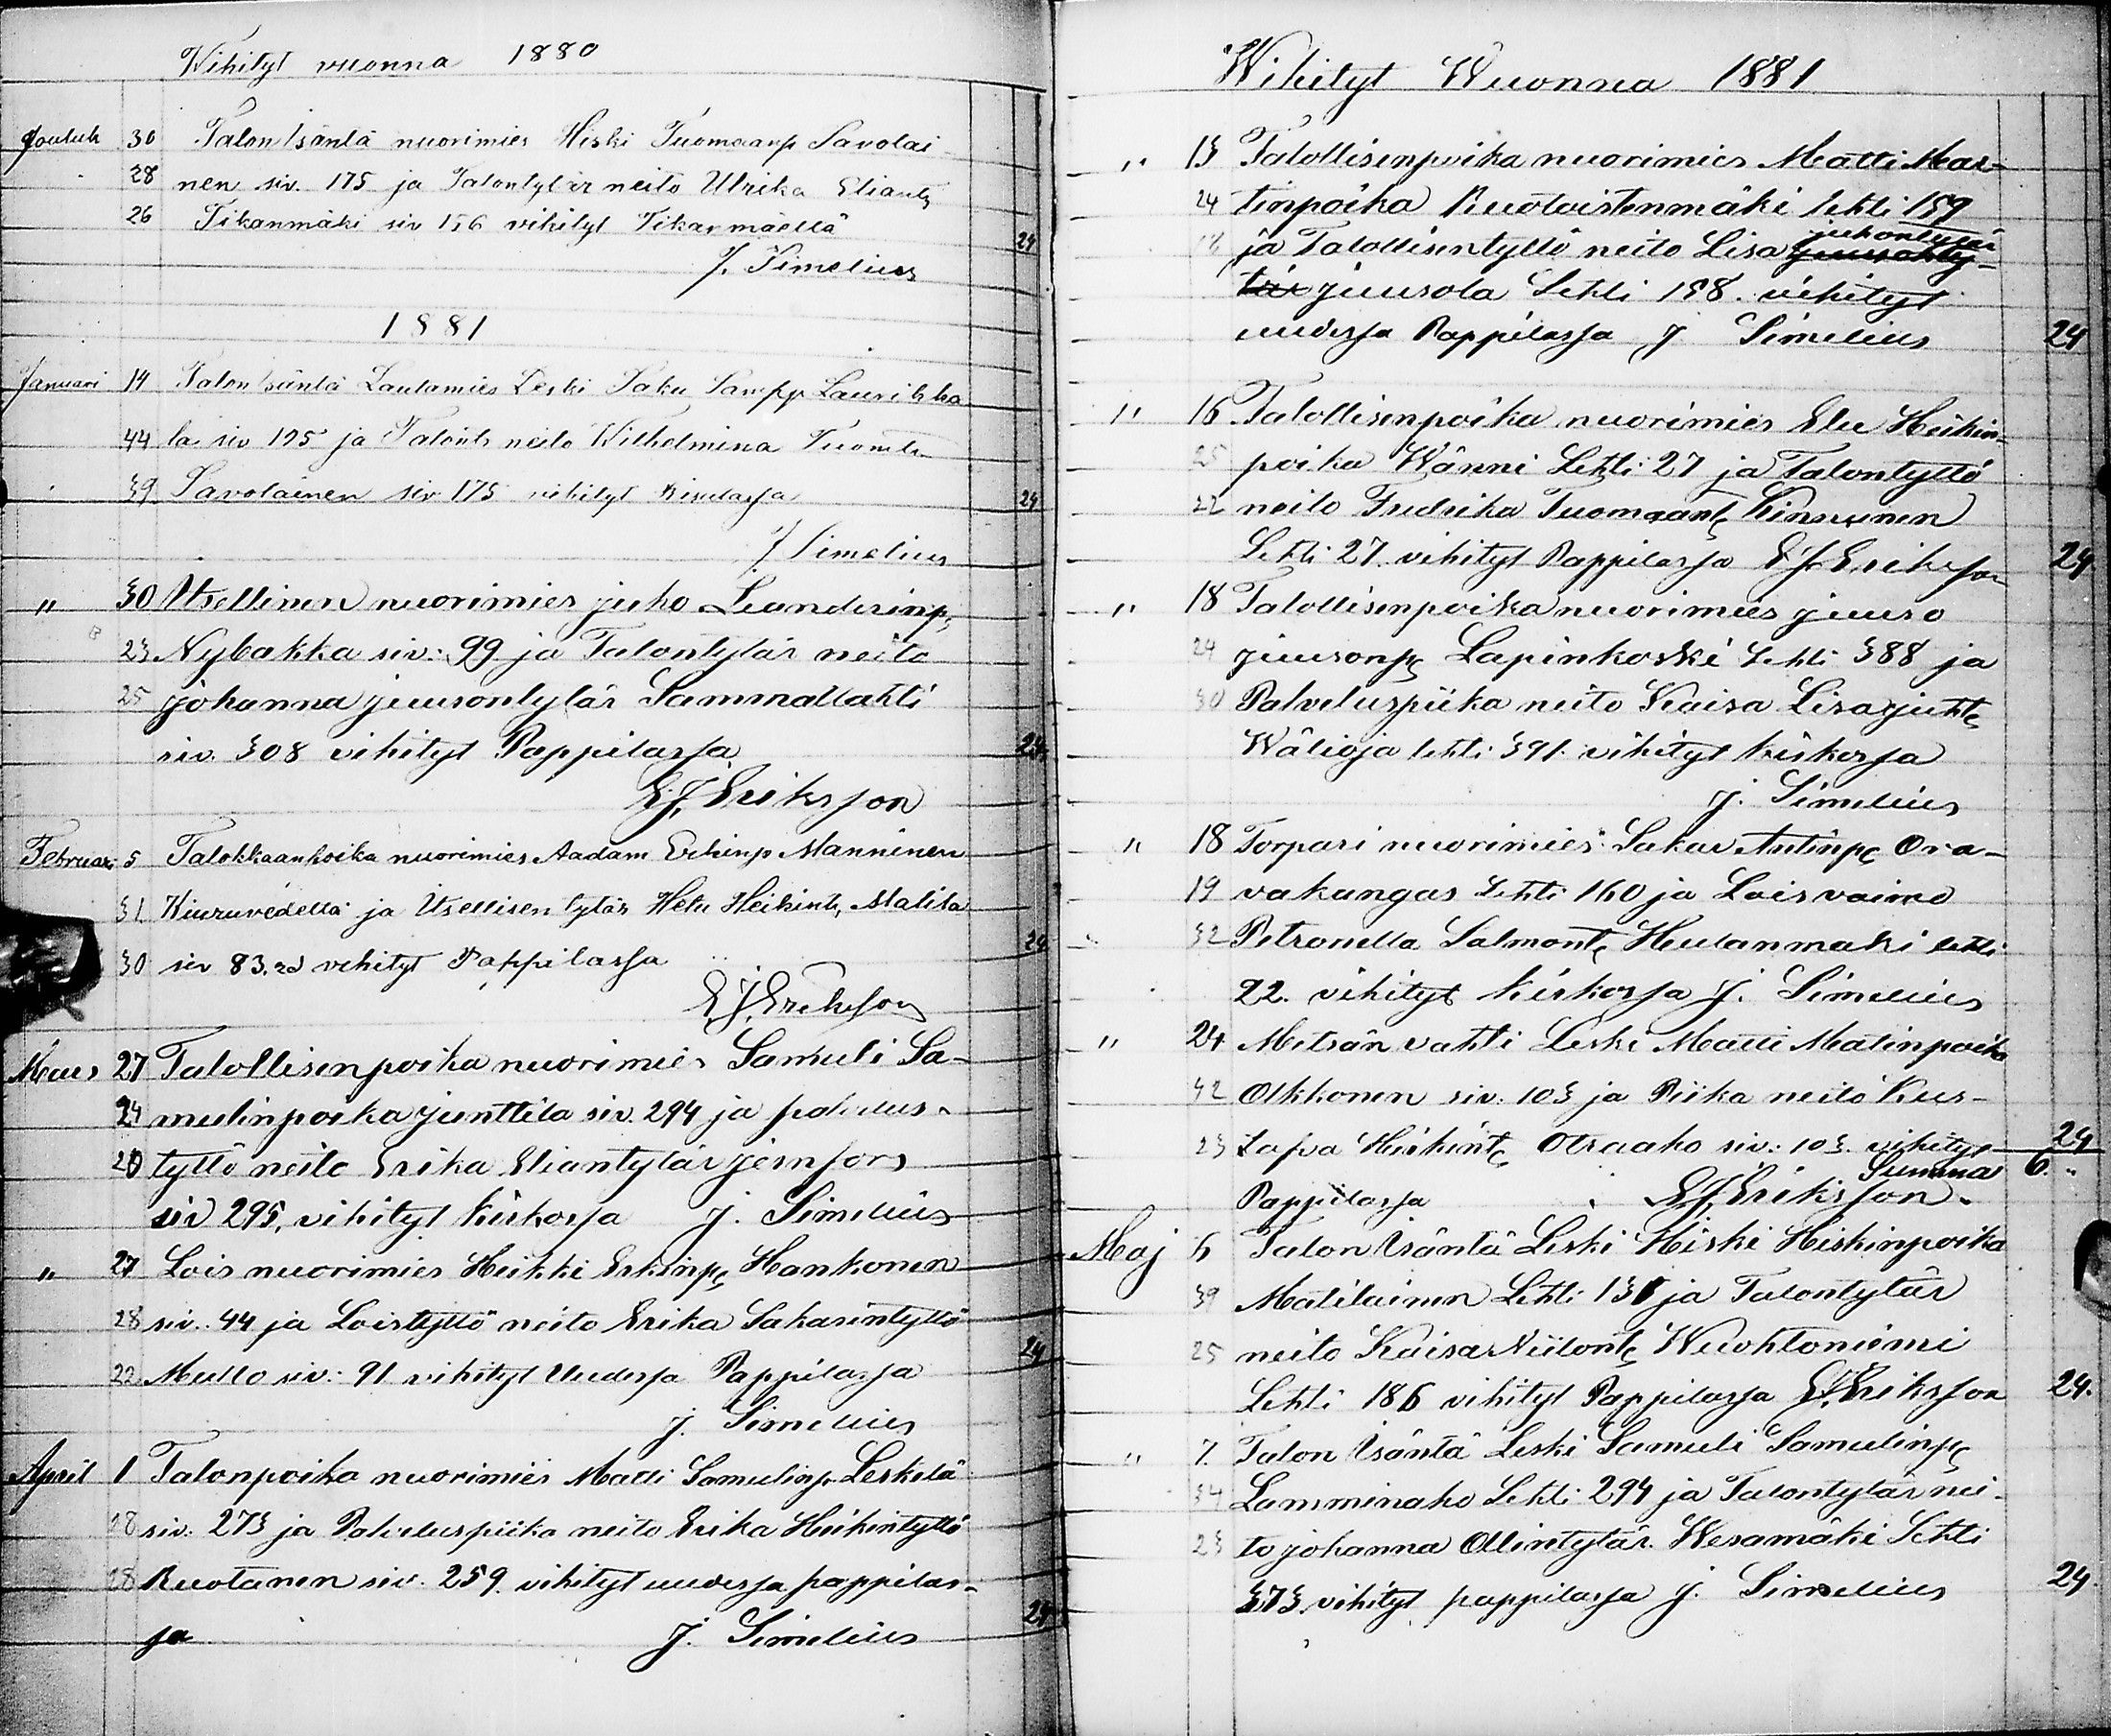 Wihityt vuonna 1880
Jouluk 30 Talon Isäntä nuorimies Hiski Tuomaanp Savolai
28 nen siv. 175 ja Talontytär neito Ulrika Eliant,
26 Tikanmäki siv 156 vihityt Tikanmäellä 24
J. Simelius
1881
Januari 14 Talon Isäntä Lautamies Leski Saku Sampp. Laurikka
44 la siv 125 ja Talont. neito Wilhelmina Tuomt.
39 Savolainen siv 175 vihityt 24
J Simelius
" 30 Itsellinen nuorimies juho Leanderinp,
23 Nybakka siv: 99 ja Talontytär neito
25 johanna juusontytär Sammallahti
siv. 308 vihityt Pappilassa 24
E.J. Eriksson
Februari 5 Talokkaanpoika nuorimies Aadam Erkinp Manninen
31 Kiuruvedellä ja Itsellisen tytär Helu Heikint, Matila
30 siv 83. vihityt Pappilassa 24
E.J. Eriksson
Mars 27 Talollisenpoika nuorimies Samuli Sa-
24 mulinpoika junttila siv. 294 ja palvelus-
20 tyttö neito Erika Eliantytär jernfors
siv 295, vihityt kirkossa J. Simelius
" 27 Lois nuorimies Heikki Erkinp, Hankonen
28 siv. 44 ja Loistyttö neito Erika Sakarintyttö
22 Mullo siv: 91 vihityt Uudessa Pappilassa 24
J. Simelius
April 1 Talonpoika nuorimies Matti Samulinp. Leskelä
18 siv. 273 ja Palveluspiika neito Erika Heikintyttö
28 Ruotanen siv. 259. vihityt uudessa pappilas-
sa J. Simelius 24
Wihityt Wuonna 1881
" 13 Talollisenpoika nuorimies Matti Mar-
24 tinpoika Ruotoistenmäki lehti 159
juhontytär
18 ja Talollisentyttö neito Lisa juusonty-
tär juusola Lehti 158. vihityt
uudessa Pappilassa J. Simelius 24
" 16 Talollisenpoika nuorimies Elu Heikin-
25 poika Wänni Lehti 27 ja Talontyttö
22 neito Fredrika Tuomaant, Kinnunen
Lehti 27. vihityt Pappilassa E J. Eriksson 24
" 18 Talollisenpoika nuorimies juuso
24 juusonp, Lapinkoski Lehti 388 ja
30 Palveluspiika neito Kaisa Lisa juht,
Wälioja lehti 391. vihityt kirkossa
J. Simelius
" 18 Torpari nuorimies Sakar Antinp, Ora-
19 vakangas Lehti 160 ja Lois vaimo
32 Petronella Salmont, Heulanmaki lehti
22. vihityt kirkossa J. Simelius
" 24 Metsän vahti Leski Matti Matinpoika
42 Olkkonen siv: 103 ja Piika neito Kus-
23 tafva Heikint, Otraaho siv: 103. vihityt 24
Summa 6. "
Pappilassa E.J. Eriksson.
Maj 6 Talon Isäntä Leski Hiski Hiskinpoika
39 Matilainen Lehti 131 ja Talontytär
25 neito Kaisa Niilont, Wuohtoniemi
Lehti 186 vihityt Pappilassa E.J. Eriksson 24.
" 7. Talon Isäntä Leski Samuli Samulinp,
34 Lamminaho Lehti 294 ja Talontytär nei-
23 to johanna Ollintytär. Wesamäki Lehti
373. vihityt pappilassa J. Simelius 24